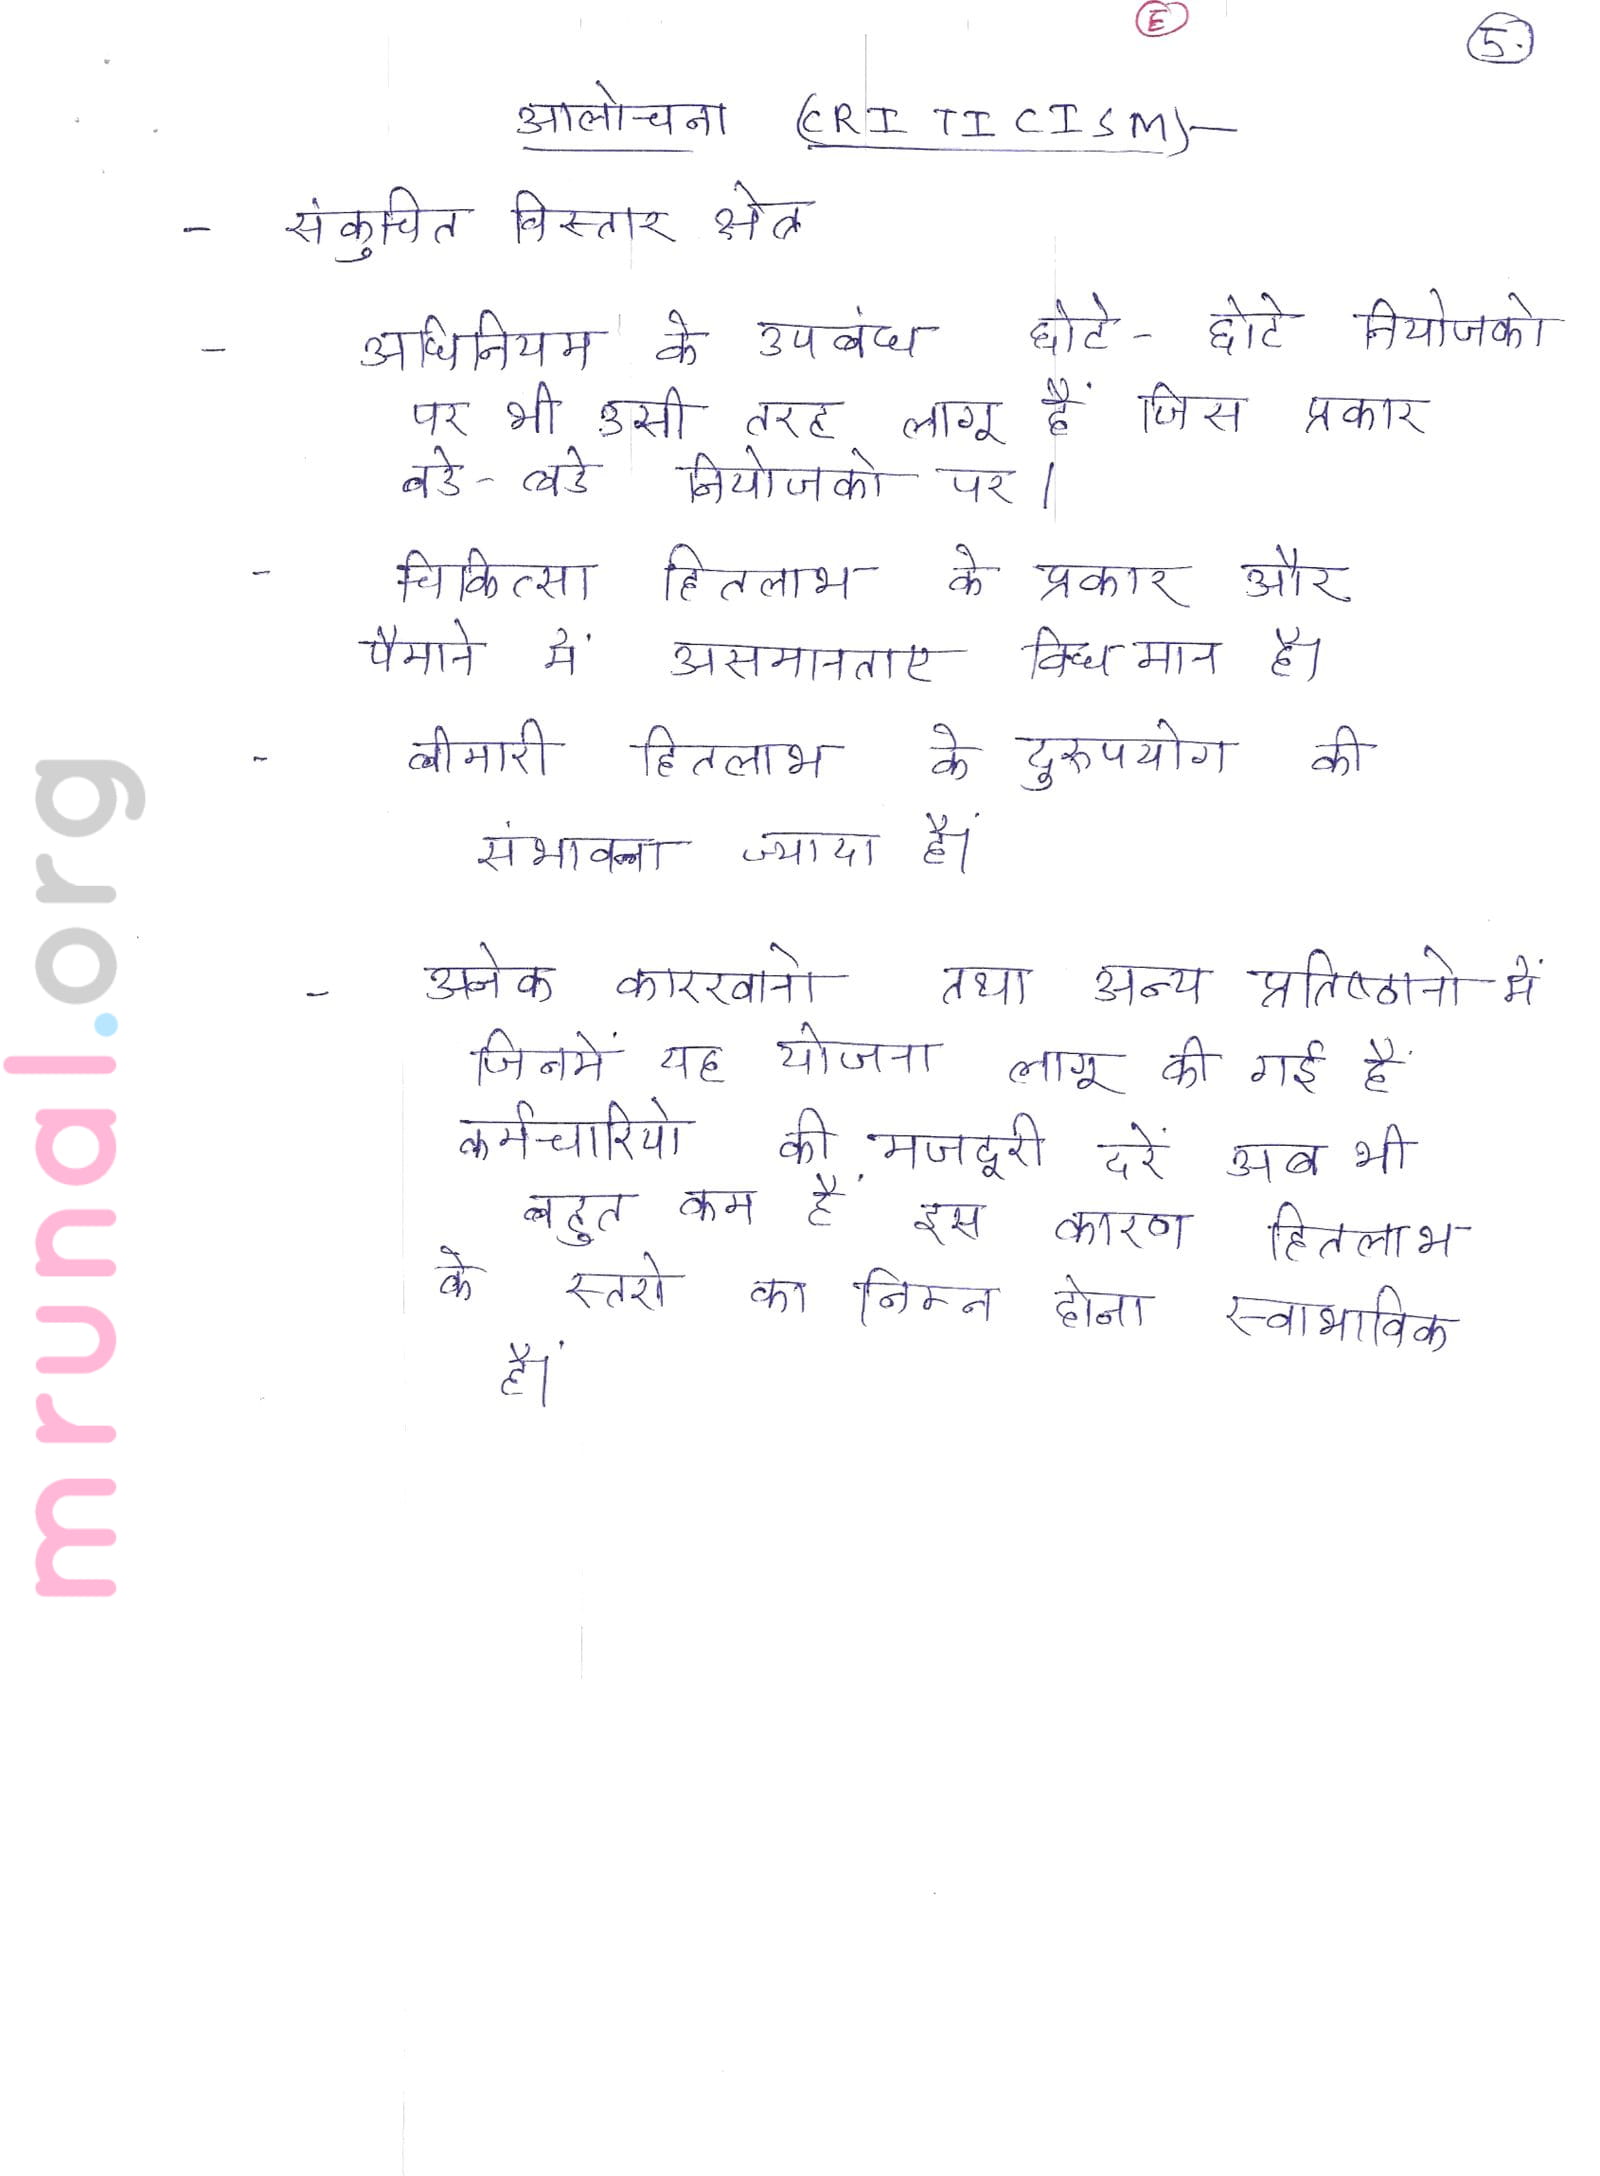 E
5.
आलोचना (CRITICISM)—
- संकुचित विस्तार क्षेत्र
- अधिनियम के उपबंध छोटे - छोटे नियोजको
पर भी उसी तरह लागू हैं जिस प्रकार
बडे - बडे नियोजको पर।
- चिकित्सा हितलाभ के प्रकार और
पैमाने में असमानताए विधमान है।
- बीमारी हितलाभ के दुरुपयोग की
संभावना ज्यादा हैं।
- अनेक कारखानो तथा अन्य प्रतिष्ठानो में
जिनमें यह योजना लागू की गई हैं
कर्मचारियो की मजदूरी दरें अब भी
बहुत कम हैं इस कारण हितलाभ
के स्तरो का निम्न होना स्वाभाविक
हैं।
mrunal.org